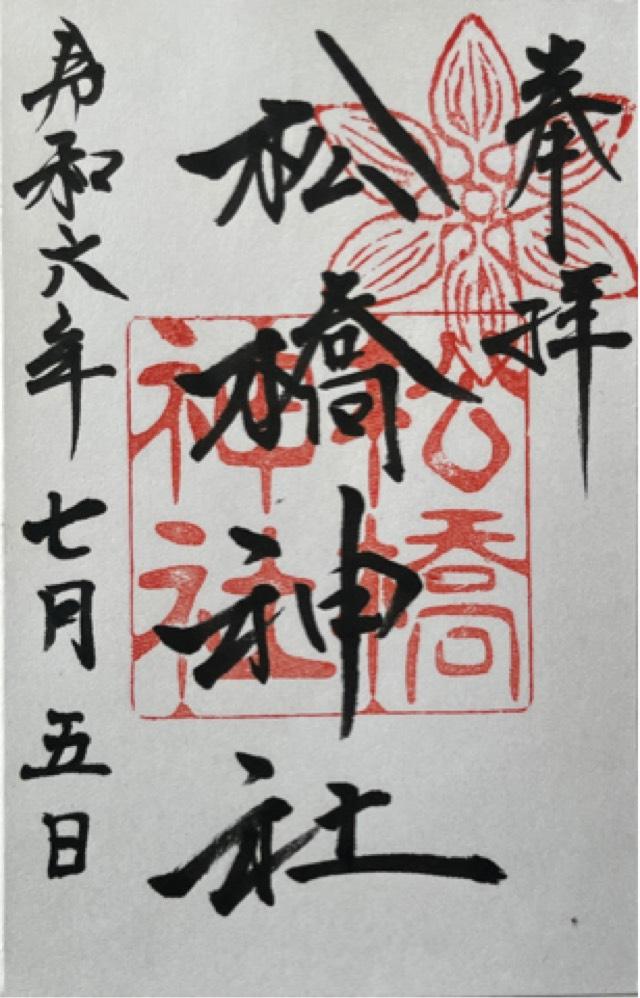 奉拝
松橋神社
松橋
神社
令和六年七月五日